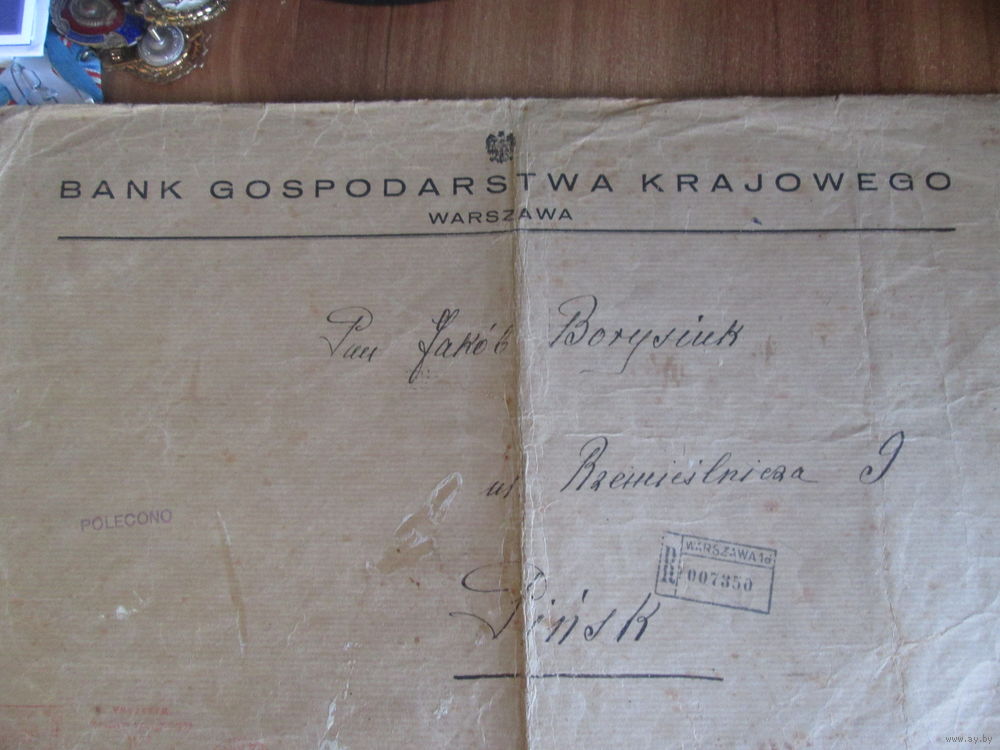 BANK GOSPODARSTWA KRAJOWEGO
WARSZAWA
Pan Jakób Borysiuk
ul Rzemieślnicza 9
POLECONO
WARSZAWA 1d
R
007350
Pińsk
WARSZAWA
www.ay.by